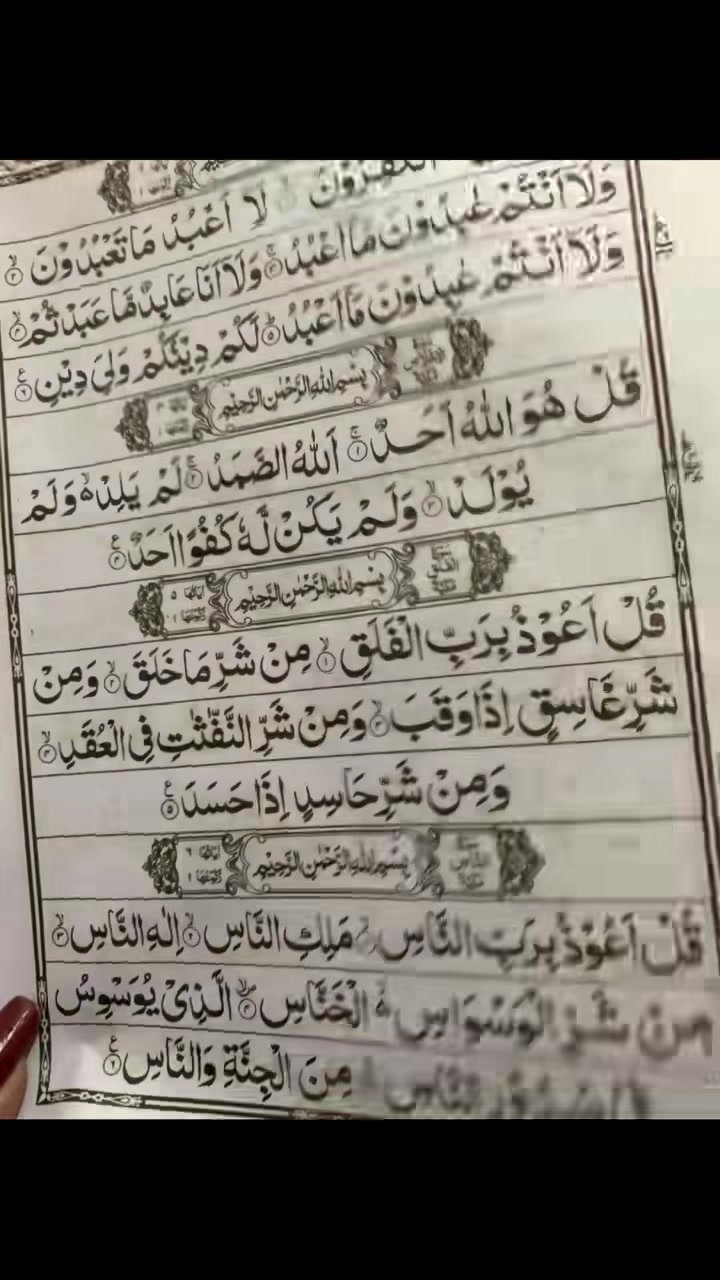 الْكٰفِرُوْنَ ۙ لَاۤ اَعْبُدُ مَا تَعْبُدُوْنَ ۙ۲
وَلَاۤ اَنْتُمْ عٰبِدُوْنَ مَاۤ اَعْبُدُ ۚ۳ وَلَاۤ اَنَا عَابِدٌ مَّا عَبَدْتُّمْ ۙ۴
وَلَاۤ اَنْتُمْ عٰبِدُوْنَ مَاۤ اَعْبُدُ ؕ۵ لَكُمْ دِيْنُكُمْ وَلِيَ دِيْنِ ۶
بِسْمِ اللهِ الرَّحْمٰنِ الرَّحِيْمِ
قُلْ هُوَ اللهُ اَحَدٌ ۚ۱ اَللهُ الصَّمَدُ ۚ۲ لَمْ يَلِدْ ەۙ وَلَمْ
يُوْلَدْ ۙ۳ وَلَمْ يَكُنْ لَّهٗ كُفُوًا اَحَدٌ ۴
بِسْمِ اللهِ الرَّحْمٰنِ الرَّحِيْمِ
قُلْ اَعُوْذُ بِرَبِّ الْفَلَقِ ۙ۱ مِنْ شَرِّ مَا خَلَقَ ۙ۲ وَمِنْ
شَرِّ غَاسِقٍ اِذَا وَقَبَ ۙ۳ وَمِنْ شَرِّ النَّفّٰثٰتِ فِي الْعُقَدِ ۙ۴
وَمِنْ شَرِّ حَاسِدٍ اِذَا حَسَدَ ۵
بِسْمِ اللهِ الرَّحْمٰنِ الرَّحِيْمِ
قُلْ اَعُوْذُ بِرَبِّ النَّاسِ ۙ۱ مَلِكِ النَّاسِ ۙ۲ اِلٰهِ النَّاسِ ۙ۳
مِنْ شَرِّ الْوَسْوَاسِ ەۙ الْخَنَّاسِ ۴ الَّذِيْ يُوَسْوِسُ
صُدُوْرِ النَّاسِ مِنَ الْجِنَّةِ وَالنَّاسِ ۶